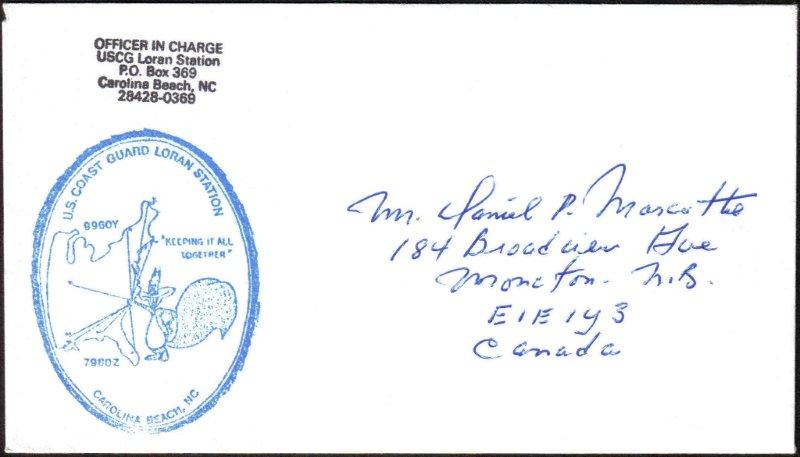 OFFICER IN CHARGE
USCG Loran Station
P.O. Box 369
Carolina Beach, NC
28428-0369
U.S. COAST GUARD LORAN STATION
9960Y
"KEEPING IT ALL
TOGETHER"
7980Z
CAROLINA BEACH, NC
Mr. Daniel P. Marcotte
184 Broadview Ave
Moncton. N.B.
E1E 1Y3
Canada